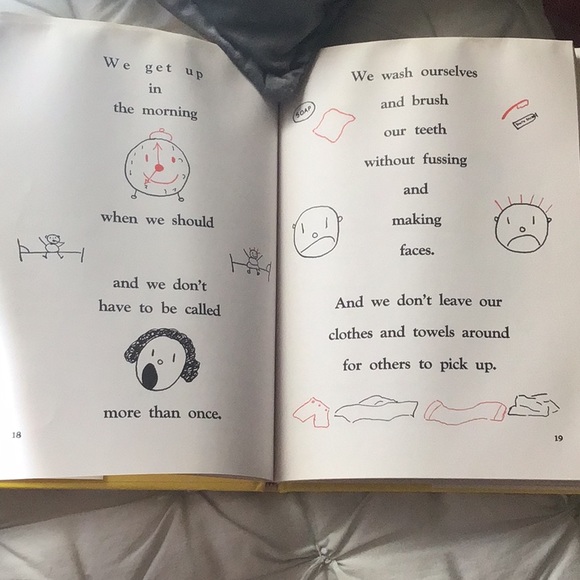 We get up
in
the morning
when we should
and we don't
have to be called
more than once.
18
We wash ourselves
and brush
our teeth
without fussing
and
making
faces.
And we don't leave our
clothes and towels around
for others to pick up.
19
SOAP